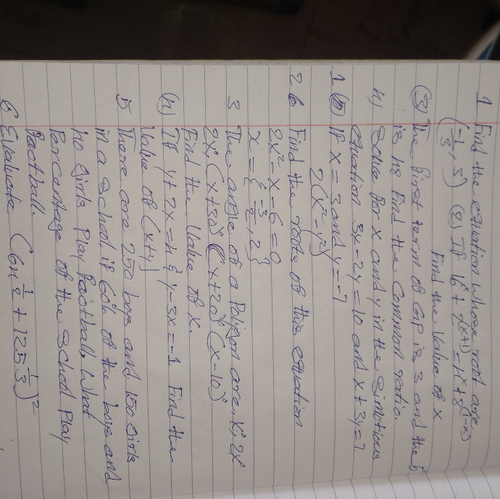 1 Find the equation whose root are
(-1/3, 3) (2) If 16 + 9(x+1) = 1x + 5(1-x)
Find the value of x
(3) The first term of GP is 3 and the 6
is Find the Common ratio.
4) Solve for x and y in the
equation 3x - 2y = 10 and x + 3y = 7
1 If x = 3 and y = -7
2(x²-y²)
2 b Find the roots of this equation
2x² - x - 6 = 0
x = {-3/2, 2}
3 The angle of a Polygon are, x°, 2x°
2x°, (x+30)°, (x+20)°, (x-10)°
Find the value of x.
If y + 2x = 4 & y - 3x = -1 Find the
Value of (x+y)
5 There are 250 boys and 150 Girls
in a School, if 60% of the boys and
Girls Play football. What
Percentage of the School Play
football.
6 Evaluate